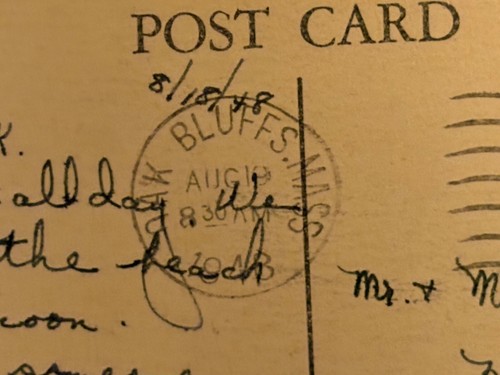 POST CARD
8/18/48
OAK BLUFFS. MASS
AUG 19
8 30 AM
1948
K.
all day. We
the beach
noon.
Mr. + M